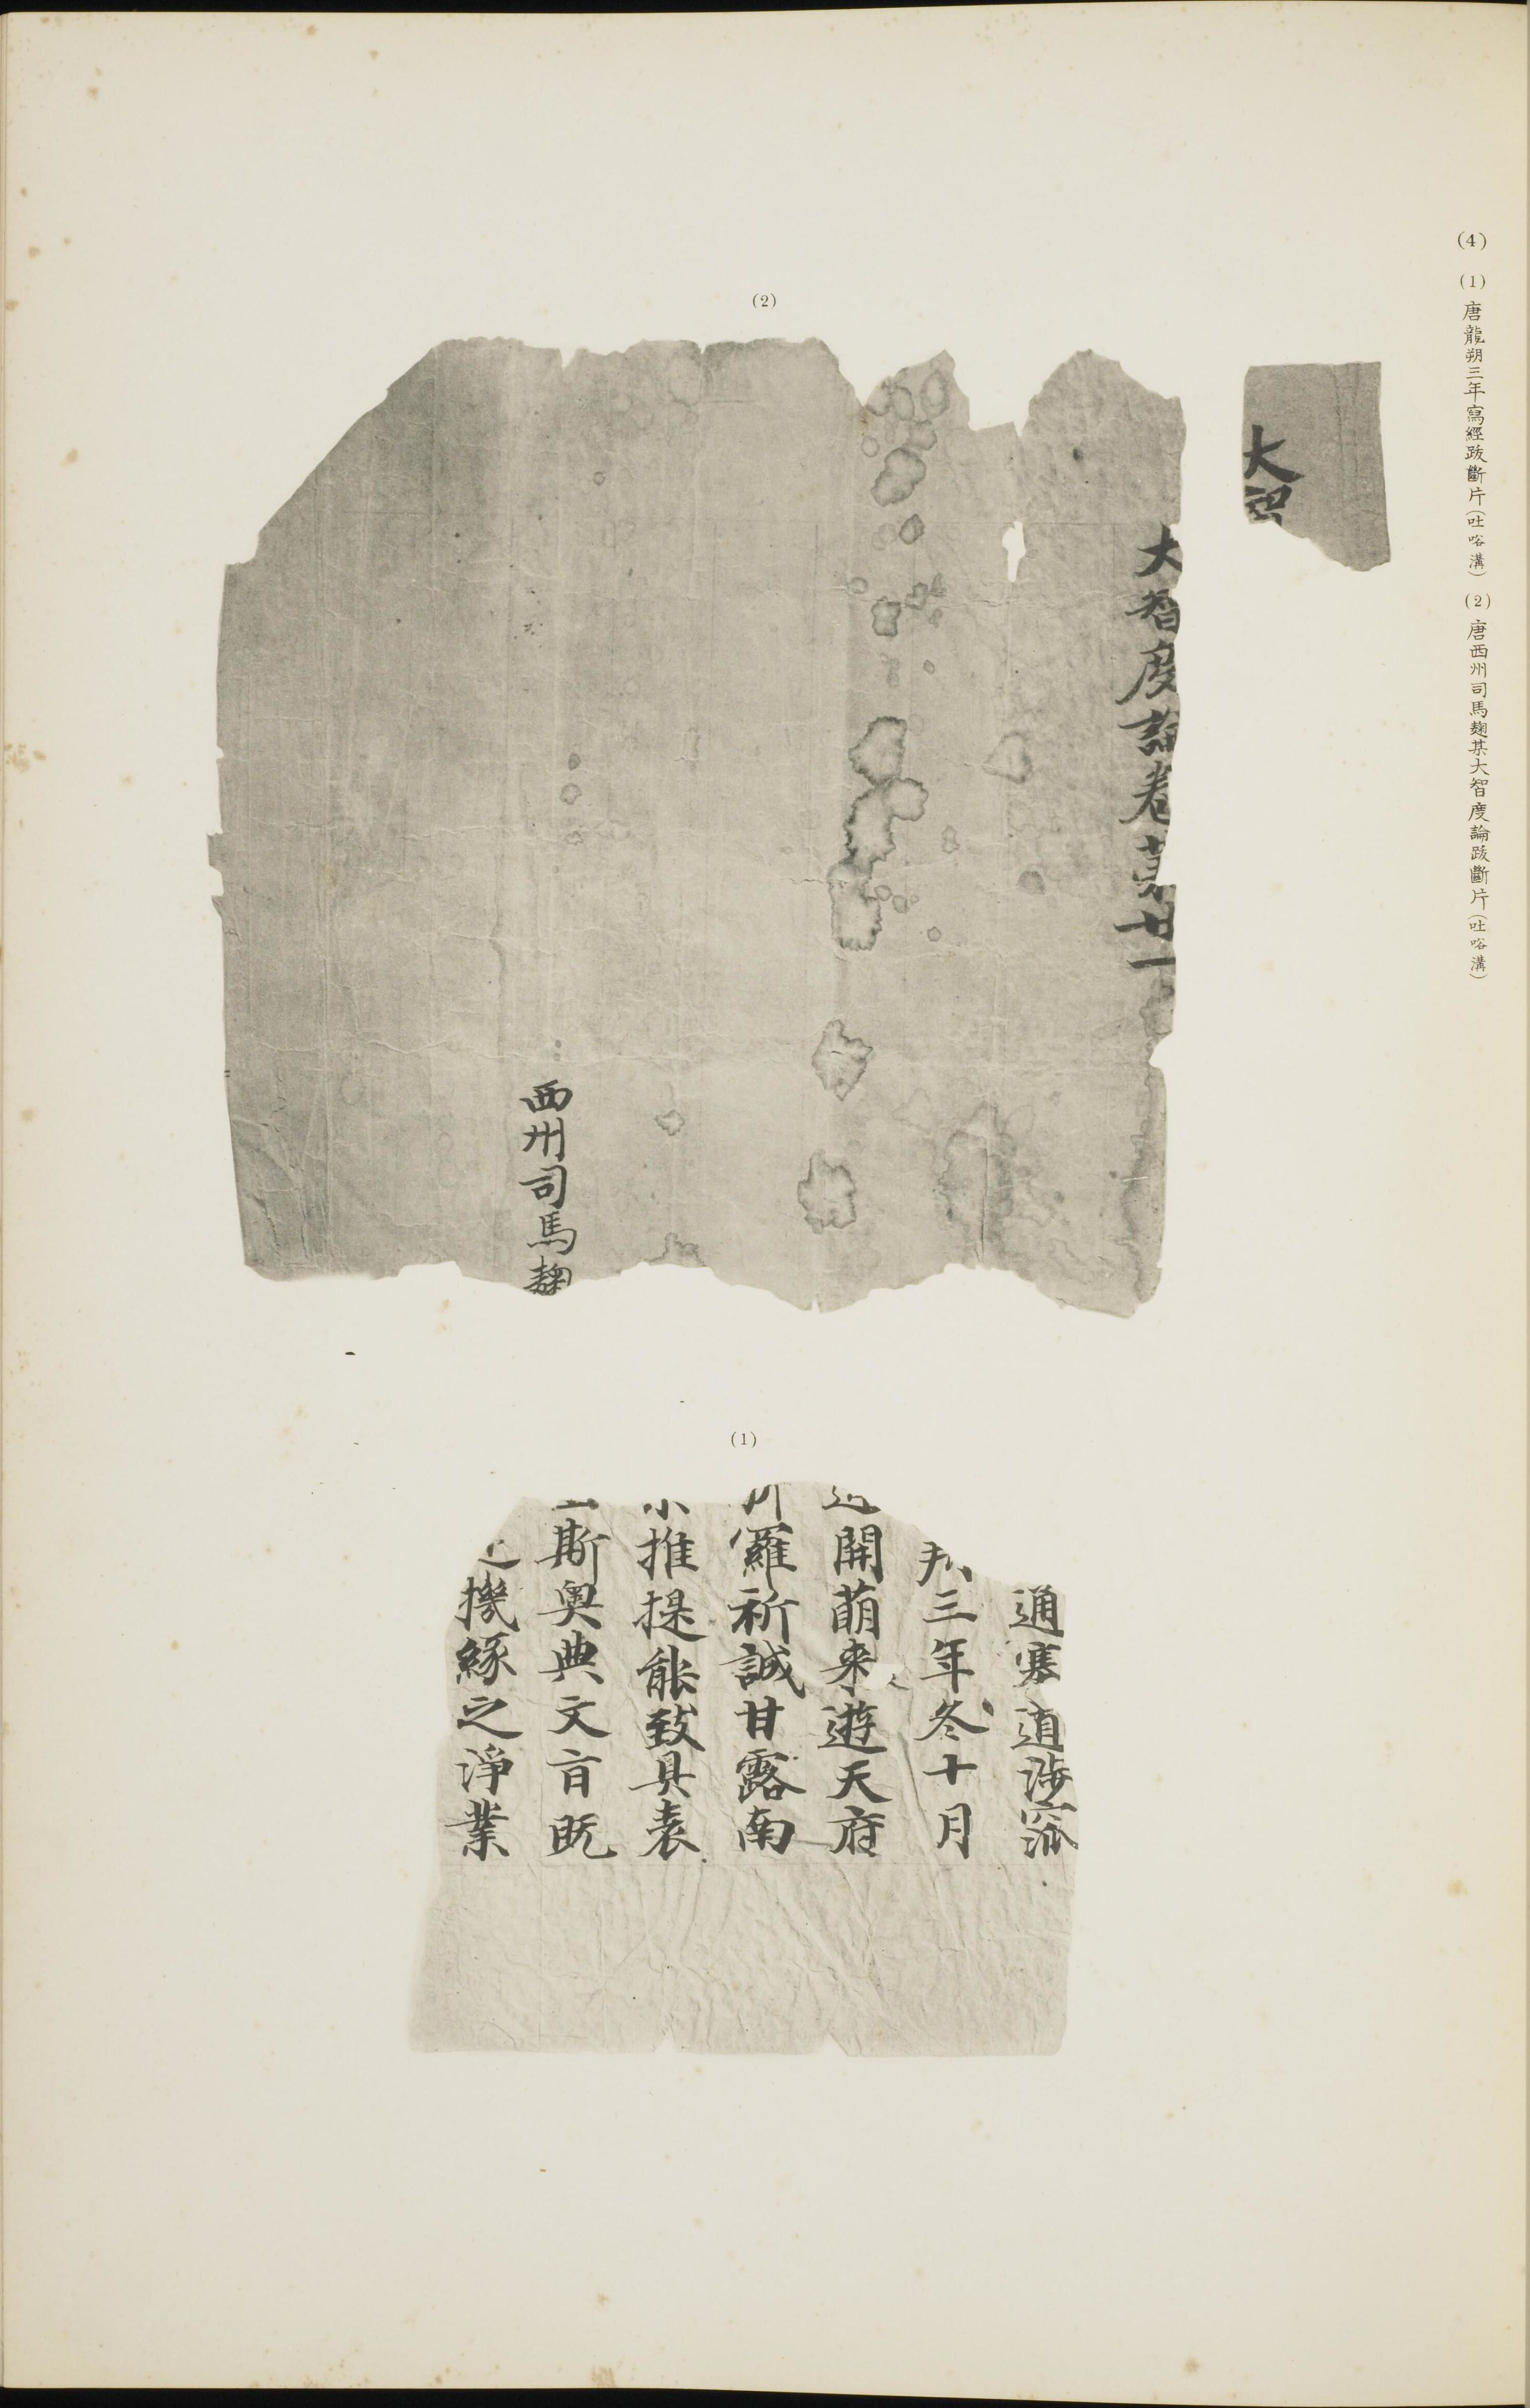 (4)
(1) 唐龍朔三年寫經跋斷片(吐峪溝) (2) 唐西州司馬麴某大智度論跋斷片(吐峪溝)
(2)
大智
大智度論卷第廿一
西州司馬麴
(1)
通塞道海
三年冬十月
開萠来遊天府
羅祈誠甘露南
推提能致具表
斯奧典文盲既
機緣之淨業